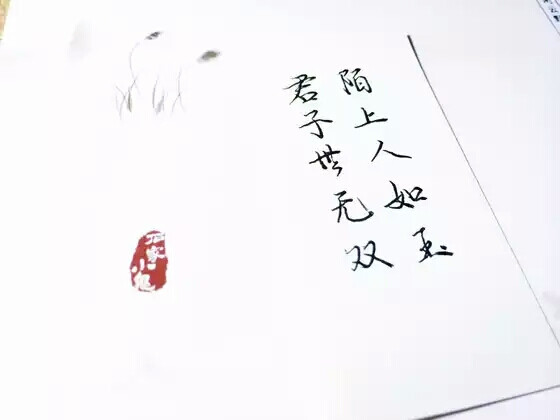 陌上人如玉
君子世无双